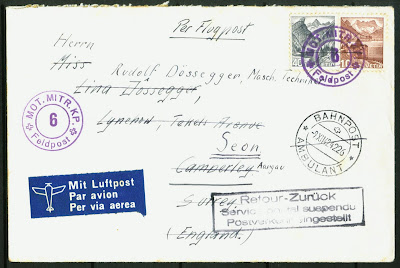 Per Flugpost
Herrn
Miss
Rudolf Dössegger, Masch. Techniker
Lina Dössegger,
Lynewen, Tekels Avenue
Seon
Camperley Aargau
Surrey
(England)
MOT. MITR. KP.
6
Feldpost
MOT. MITR. KP.
6
Feldpost
BAHNPOST
AMBULANT
Mit Luftpost
Par avion
Per via aerea
Retour-Zurück
Service postal suspendu
Postverkehr eingestellt